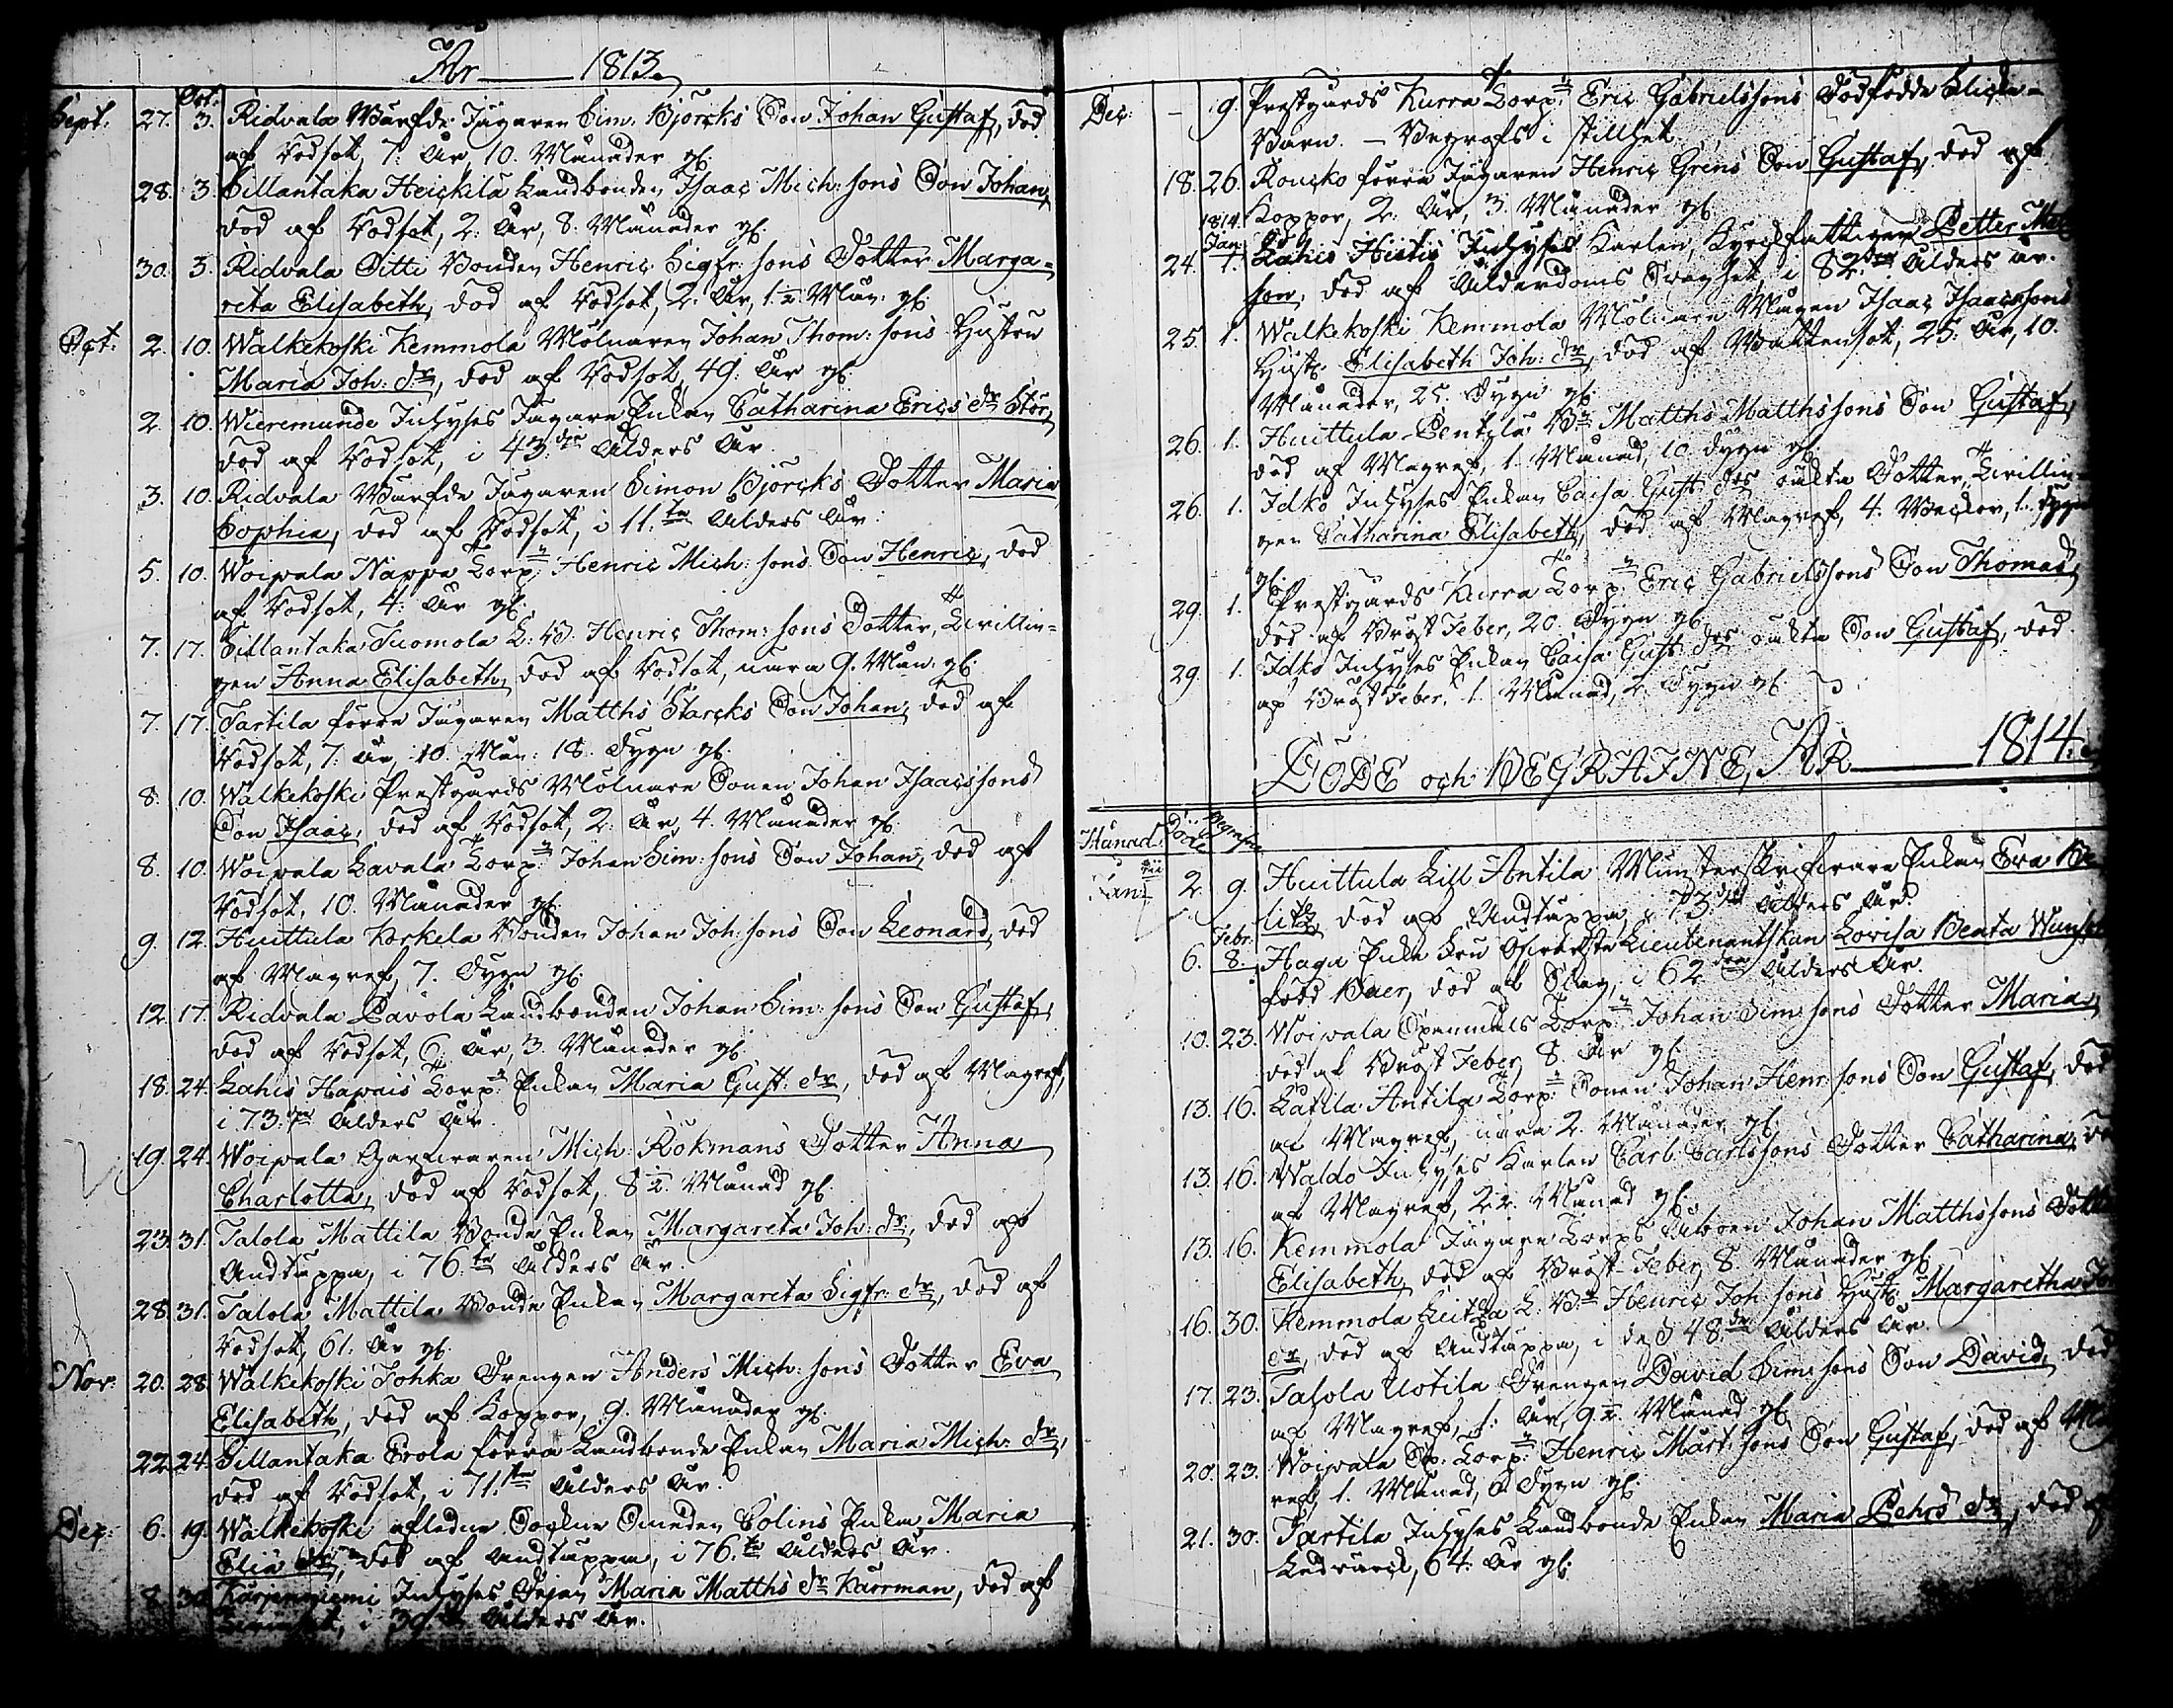 År 1813.
Oct:
Sept: 27. 3. Ridvala Warfde Jägaren Sim. Björcks Son Johan Gustaf, död
af Rödsot, 7. År, 10. Månader gl.
28. 3. Sillantaka Heickilä Landbonden Isaac Mich:sons Son Johan,
död af Rödsot, 2. År, 8. Månader gl.
30. 3. Ridvala Pitti Bonden Henric Sigfr:sons Dotter Marga-
reta Elisabeth, död af Rödsot, 2. År, 1.½ Mån. gl.
Oct: 2. 10. Walkekoski Kemmola Mölnaren Johan Thom:sons Hustru
Maria Joh:dr, död af Rödsot, 49. År gl.
2. 10. Wieremunde Inhyses Jägare Enkan Catharina Erics dr Stör,
död af Rödsot, i 43.dje Ålders År.
3. 10. Ridvala Warfde Jägaren Simon Björcks Dotter Maria
Sophia, död af Rödsot, i 11.te Ålders År.
5. 10. Woipala Nappa Torp:n Henric Mich:sons Son Henric, död
af Rödsot, 4. År gl.
7. 17. Sillantaka Tuomola L:B. Henric Thom:sons Dotter, Tvillin-
gen Anna Elisabeth, död af Rödsot, nära 9. Mån. gl.
7. 17. Tartila förra Jägaren Matths Starcks Son Johan, död af
Rödsot, 7. År, 10. Mån: 18. Dygn gl.
8. 10. Walkekoski Prestgårds Mölnare Sonen Johan Isaacssons
Son Isaac, död af Rödsot, 2. År, 4. Månader gl.
8. 10. Woipala Lavala Torp:n Johan Sim:sons Son Johan, död af
Rödsot, 10. Månader gl.
9. 12. Huittula Korkela Bonden Johan Joh:sons Son Leonard, död
af Magref, 7. Dygn gl.
12. 17. Ridvala Pavola Landbonden Johan Sim:sons Son Gustaf,
död af Rödsot, 6. År, 3. Månader gl.
18. 24. Lahis Hapais Torp: Enkan Maria Gust:dr, död af Magref,
i 73.dje Ålders År.
19. 24. Woipala Mich: Rökmans Dotter Anna
Charlotta, död af Rödsot, 8½. Månad gl.
23. 31. Talola Mattila Bonde Enkan Margareta Joh:dr, död af
Andtäppa, i 76.te Ålders År.
28. 31. Talola Mattila Bonde Enkan Margareta Sigfr:dr, död af
Rödsot, 61. År gl.
Nov: 20. 28. Walkekoski Johka Drengen Anders Mich:sons Dotter Eva
Elisabeth, död af Koppor, 9. Månader gl.
22. 24. Sillantaka Erola förra Landbonde Enkan Maria Mich:dr,
död af Rödsot, i 71.sta Ålders År.
Dec: 6. 19. Walkekoski afledne Sockne Smeden Colins Enka Maria
Elia dr, död af Andtäppa, i 76.te Ålders År.
8. 30. Karjenniemi Inhyses Pigan Maria Matths dr Karrman, död af
i 39.de Ålders År.
Dec: – 9. Prestgårds Kurra Torp:n Eric Gabrielssons Dödfödde Flicke-
Barn. – Begrofs i stillhet.
18. 26. Roucko förra Jägaren Henric Grens Son Gustaf, död af
Koppor, 2. År, 3. Månader gl.
1814.
Jan:
24. 1. Lahis Hietis Inhyses Karlen, Kyrcofattigen Petter
son, död af Ålderdoms Svaghet, i 82.dra Ålders år.
25. 1. Walkekoski Kemmola Mölnare Mågen Isaac Isaacssons
Hust: Elisabeth Joh:dr, död af Wattensot, 25. År, 10.
Månader, 25. Dygn gl.
26. 1. Huittula Pentilä B:n Matths Matthssons Son Gustaf,
död af Magref, 1. Månad, 10. dygn gl.
26. 1. Idko Inhyses Enkan Caisa Gust:drs oäkta Dotter, Tvillin-
gen Catharina Elisabeth, död af Magref, 4. Weckor, 1. dygn
gl.
29. 1. Prestgårds Kurra Torp:n Eric Gabrielssons Son Thomas,
död af Bröst Feber, 20. Dygn gl.
29. 1. Idko Inhyses Enkan Caisa Gust:drs oäkta Son Gustaf, död
af Bröst Feber, 1. Månad, 2. Dygn gl.
DÖDE och BEGRAFNE, ÅR 1814.
Månad. Döde Begrafne
Jan: 2. 9. Huittula Lill Antila Munsterskrifvare Enkan Eva
litz, död af Andtäppa, i 73.dje Ålders År.
Febr:
6. 8. Haga Enke Fru Öfverste Lieutenantskan Lovisa Beata
född Baer, död af Slag, i 62.dra Ålders År.
10. 23. Woipala Spennals Torp:n Johan Sim:sons Dotter Maria,
död af Bröst Feber, 8. År gl.
13. 16. Latila Antila Torp:Sonen Johan Henr:sons Son Gustaf, död
af Magref, nära 2. Månader gl.
13. 16. Waldo Inhyses Karlen Carl Carlssons Dotter Catharina,
af Magref, 2½. Månad gl.
13. 16. Kemmola Jägare Corps Johan Matthssons
Elisabeth, död af Bröst-Feber, 8. Månader gl.
16. 30. Kemmola Leitza L. B:n Henric Joh:sons Hust: Margaretha
dr, död af Andtäppa, i des 48.de Ålders År.
17. 23. Talola Uotila Drengen David Sim:sons Son David, död
af Magref, 1. År, 9½. Månad gl.
20. 23. Woipala Sp. Torp:n Henric Mårt:sons Son Gustaf, död af
ref, 1. Månad, 6. Dygn gl.
21. 30. Tartila Inhyses Landbonde Enkan Maria Pehrs dr, död af
Ledvärck, 64. År gl.